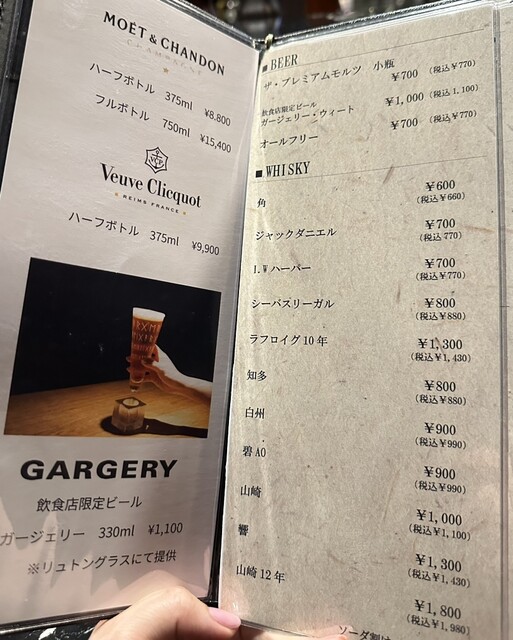 MOËT & CHANDON
CHAMPAGNE
ハーフボトル 375ml ¥8,800
フルボトル 750ml ¥15,400
VCP
Veuve Clicquot
REIMS FRANCE
ハーフボトル 375ml ¥9,900
GARGERY
飲食店限定ビール
ガージェリー 330ml ¥1,100
※リュトングラスにて提供
■BEER
ザ・プレミアムモルツ 小瓶 ¥700 (税込¥770)
飲食店限定ビール
ガージェリー・ウィート ¥1,000 (税込1,100)
オールフリー ¥700 (税込¥770)
■WHISKY
角 ¥600
(税込¥660)
ジャックダニエル ¥700
(税込770)
I.Wハーパー ¥700
(税込¥770)
シーバスリーガル ¥800
(税込¥880)
ラフロイグ10年 ¥1,300
(税込¥1,430)
知多 ¥800
(税込¥880)
白州 ¥900
(税込¥990)
碧AO ¥900
(税込¥990)
山崎 ¥1,000
(税込¥1,100)
響 ¥1,300
(税込¥1,430)
山崎12年 ¥1,800
(税込¥1,980)
ソーダ割は